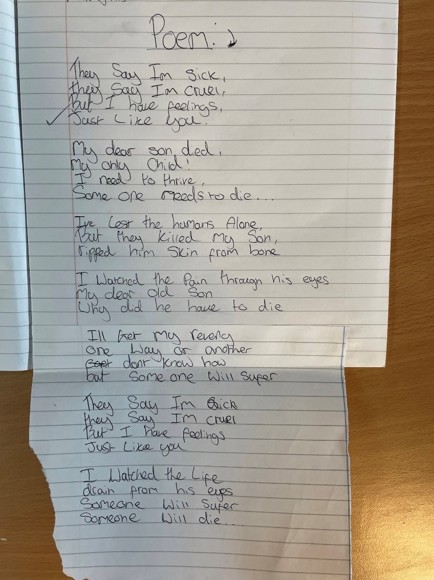 Poem:
They Say Im Sick,
they Say Im cruel,
But I have feelings,
Just Like you.
My dear son died,
My only Child!
I need to thrive,
Some one needs to die...
I've Left the humans Alone,
But they killed My Son,
ripped him Skin from bone
I Watched the Pain through his eyes
My dear old Son
Why did he have to die
Ill Get My Reveng
One Way or another
dont know how
but Some one Will Super
They Say Im Sick
they Say Im cruel
But I have feelings
Just Like you
I Watched the Life
drain from his eyes
Someone Will Super
Someone Will die...